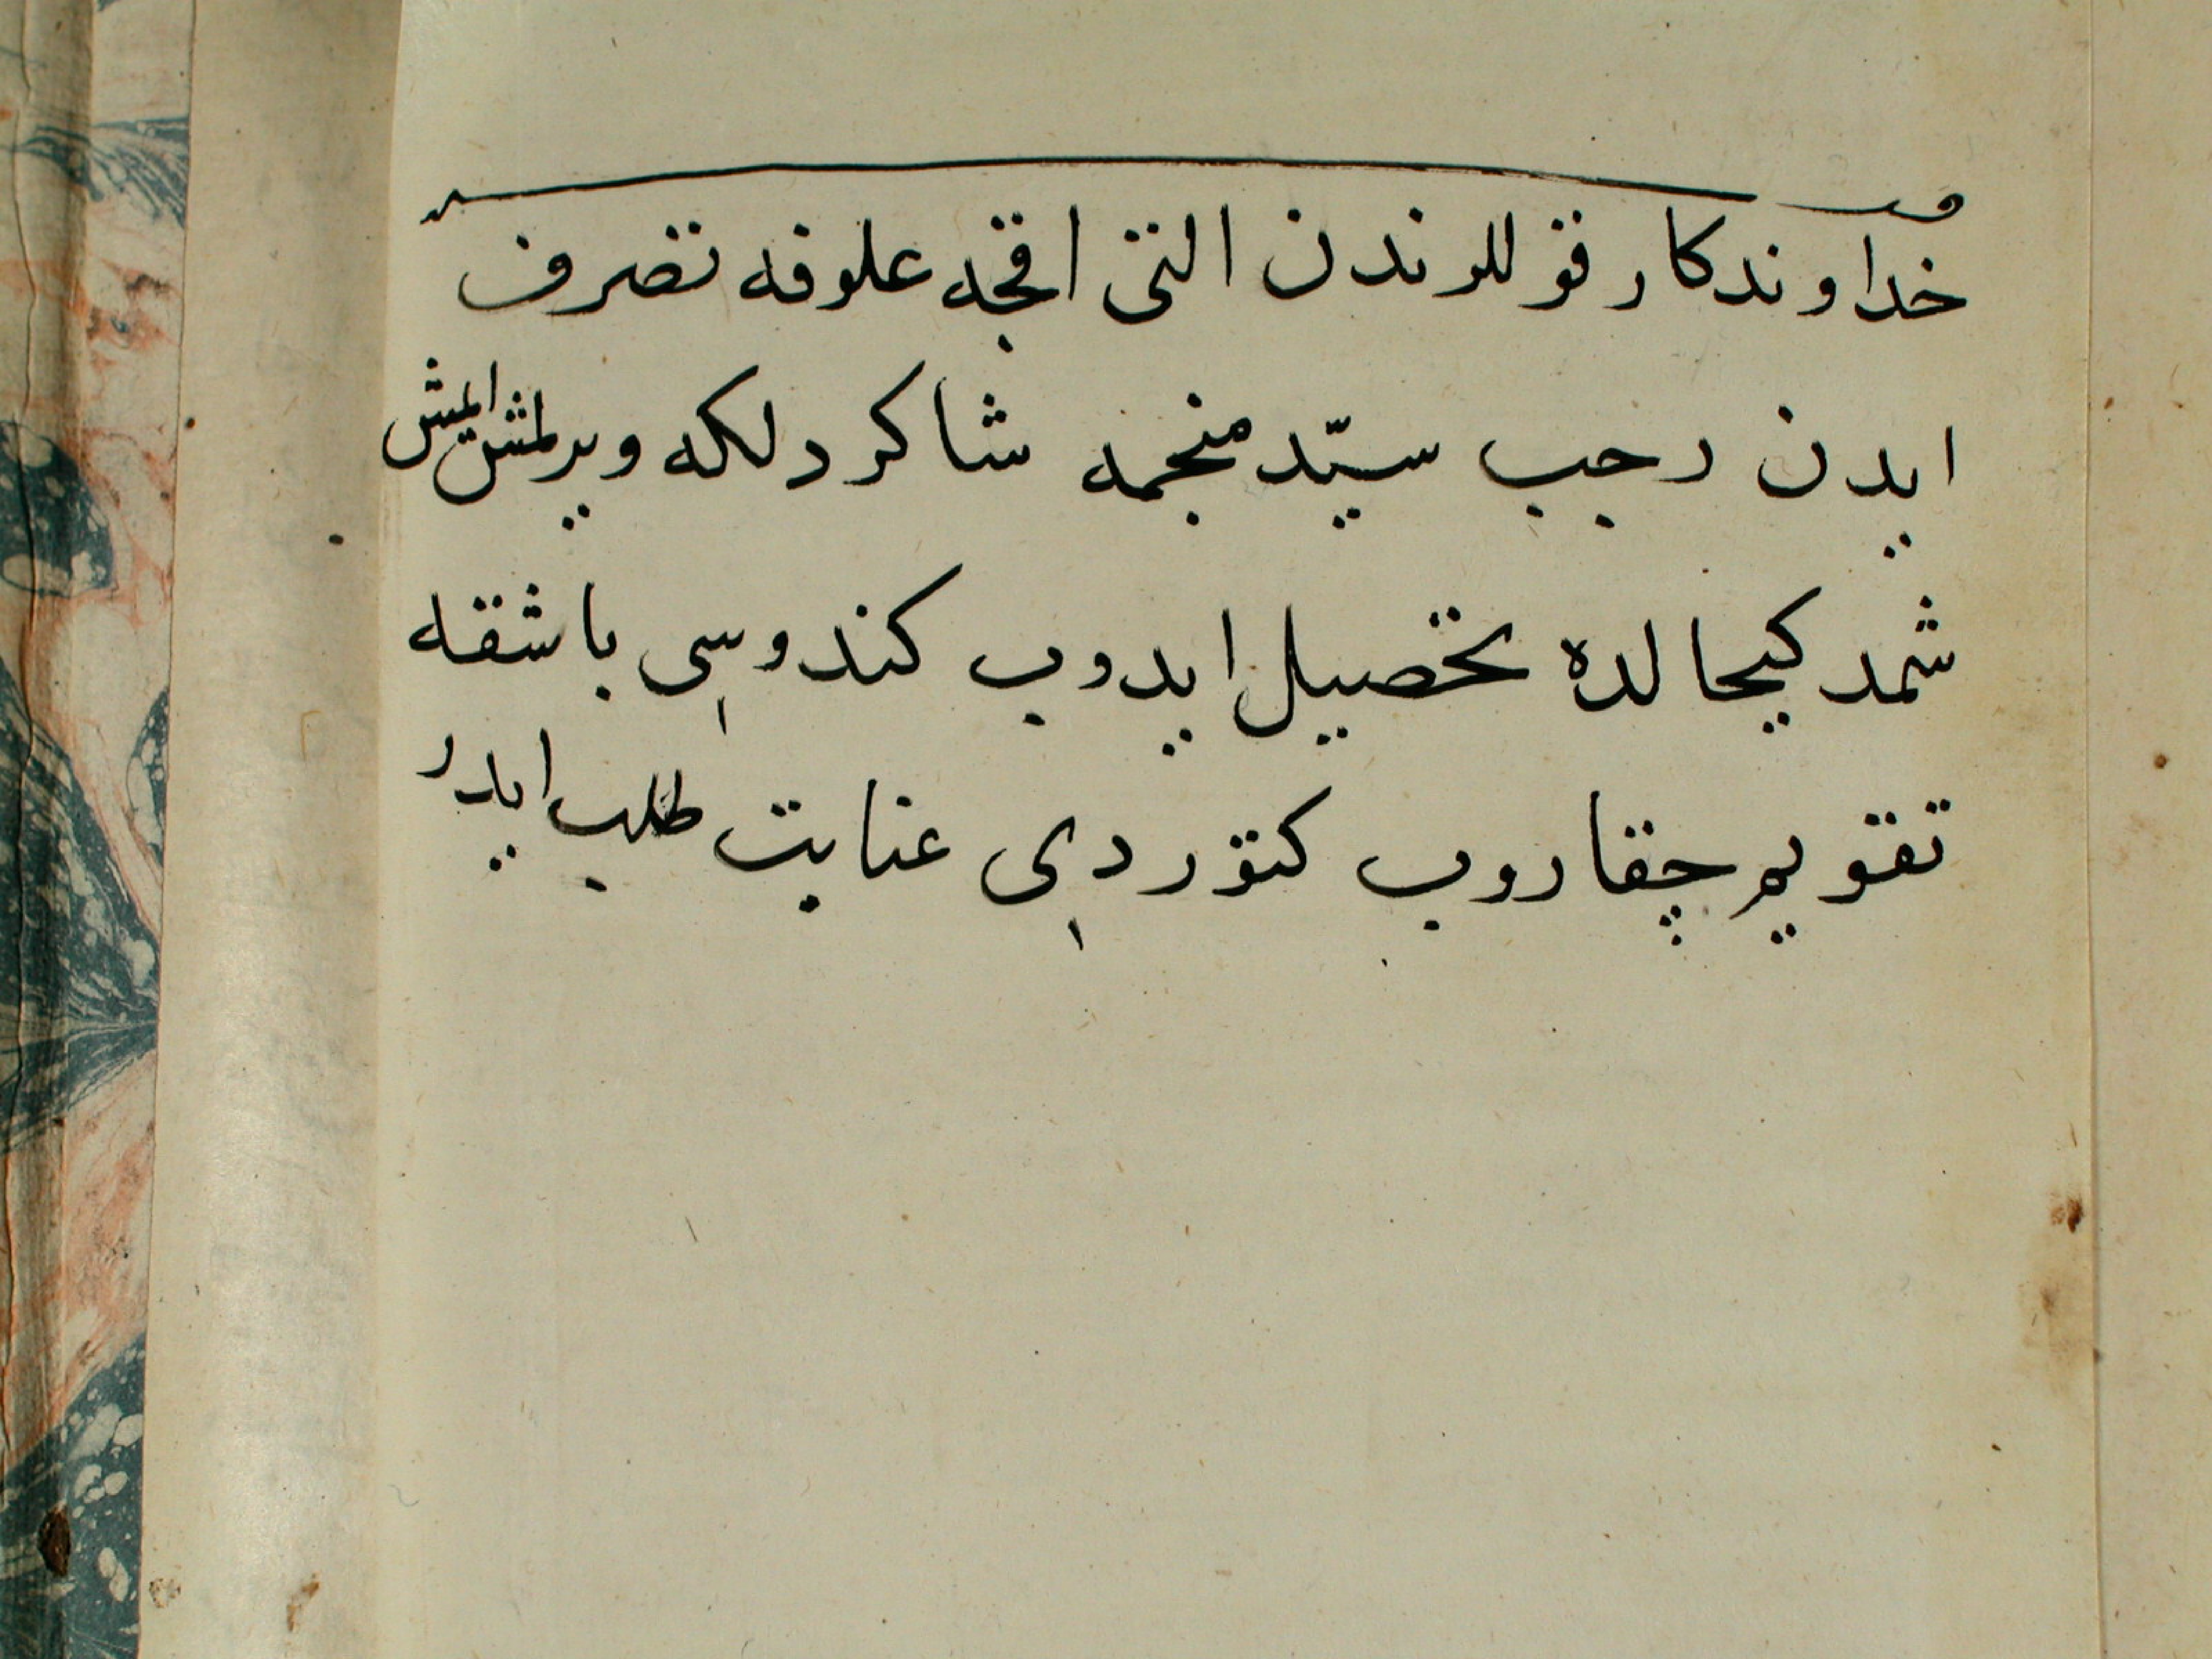 خداوندكار قوللرندن التى اقچه علوفه تصرف
ايدن رجب سيّد منجمه شاكردلكه ويرلمش ايمش
شمدكيحالده تحصيل ايدوب كندوسى باشقه
تقويم چقاروب كتوردى عنايت طلب ايدر